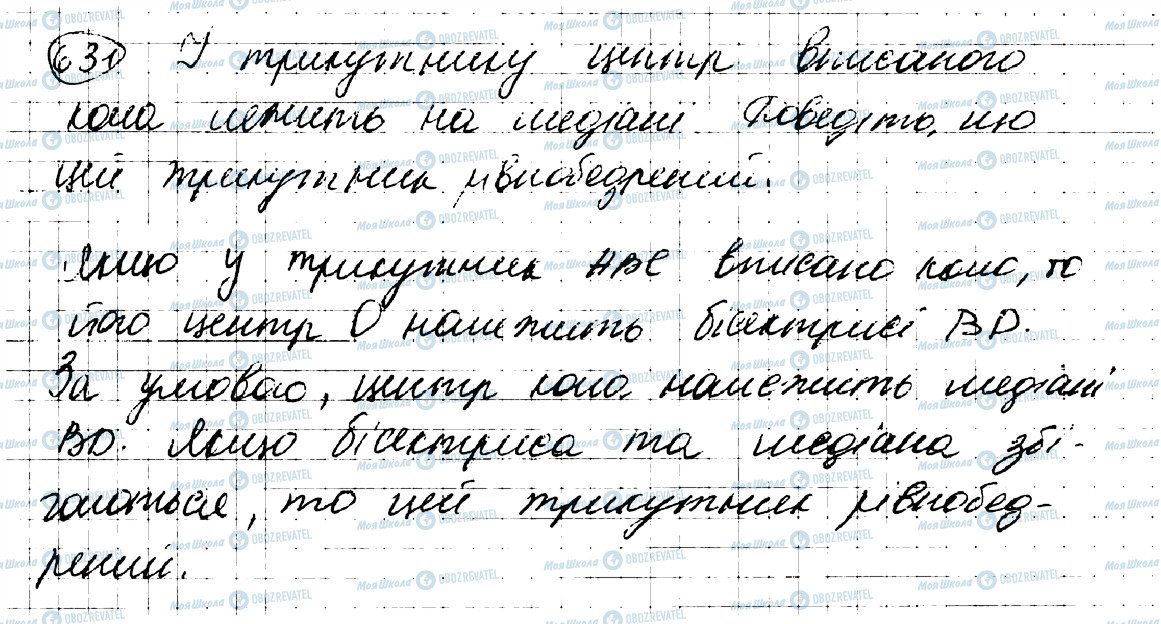 631 У трикутнику центр вписаного
кола лежить на медіані Доведіть, що
цей трикутник рівнобедрений.
Якщо у трикутник ABC вписано коло, то
його центр O належить бісектрисі BD.
За умовою, центр кола належить медіані
BD. Якщо бісектриса та медіана збі-
гаються, то цей трикутник рівнобед-
рений.